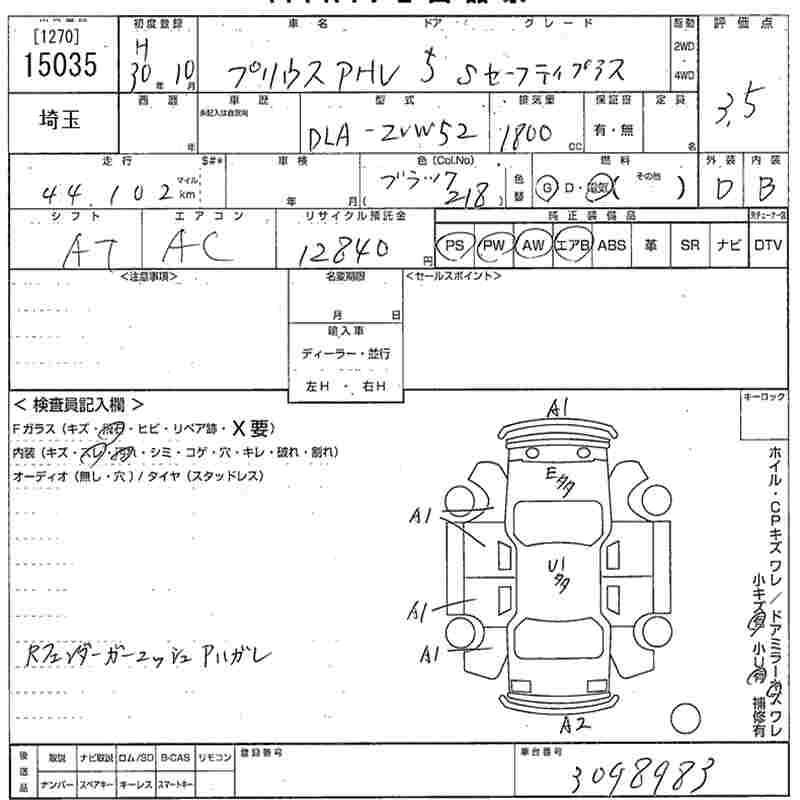 [1270]
15035
埼玉
初度登録
H
30年 10月
車名 ドア グレード
プリウスPHV 5 Sセーフティプラス
駆動
2WD
4WD
評価点
3.5
西暦
年
車歴
未記入は自家用
型式
DLA-ZVW52
排気量
1800
CC
保証書
有・無
定員
名
走行 S#*
44,102
マイル
km
車検
年 月
色(Col.No)
ブラック
( 218 )
色替
燃料
G D・電気( その他 )
外装
D
内装
B
シフト
AT
エアコン
AC
リサイクル預託金
12840 円
純正装備品
PS PW AW エアB ABS 革 SR ナビ
DTV
<注意事項>
名変期限
月 日
輸入車
ディーラー・並行
左H ・ 右H
<セールスポイント>
< 検査員記入欄 >
Fガラス (キズ・飛石・ヒビ・リペア跡・X要)
内装 (キズ・スレ・汚れ・シミ・コゲ・穴・キレ・破れ・割れ)
オーディオ (無し・穴) / タイヤ (スタッドレス)
Rフェンダーガーニッシュ アリガレ
キーロック
A1
E
タタ
A1
U1
タタ
A1
A1
A2
ホイル・CPキズワレ/ドアミラーキズワレ
小キズ有 小U有 補修有
後送品
取説 ナビ取説 ロム/SD B-CAS リモコン
ナンバー スペアキー キーレス スマートキー
登録番号
車台番号
3098983